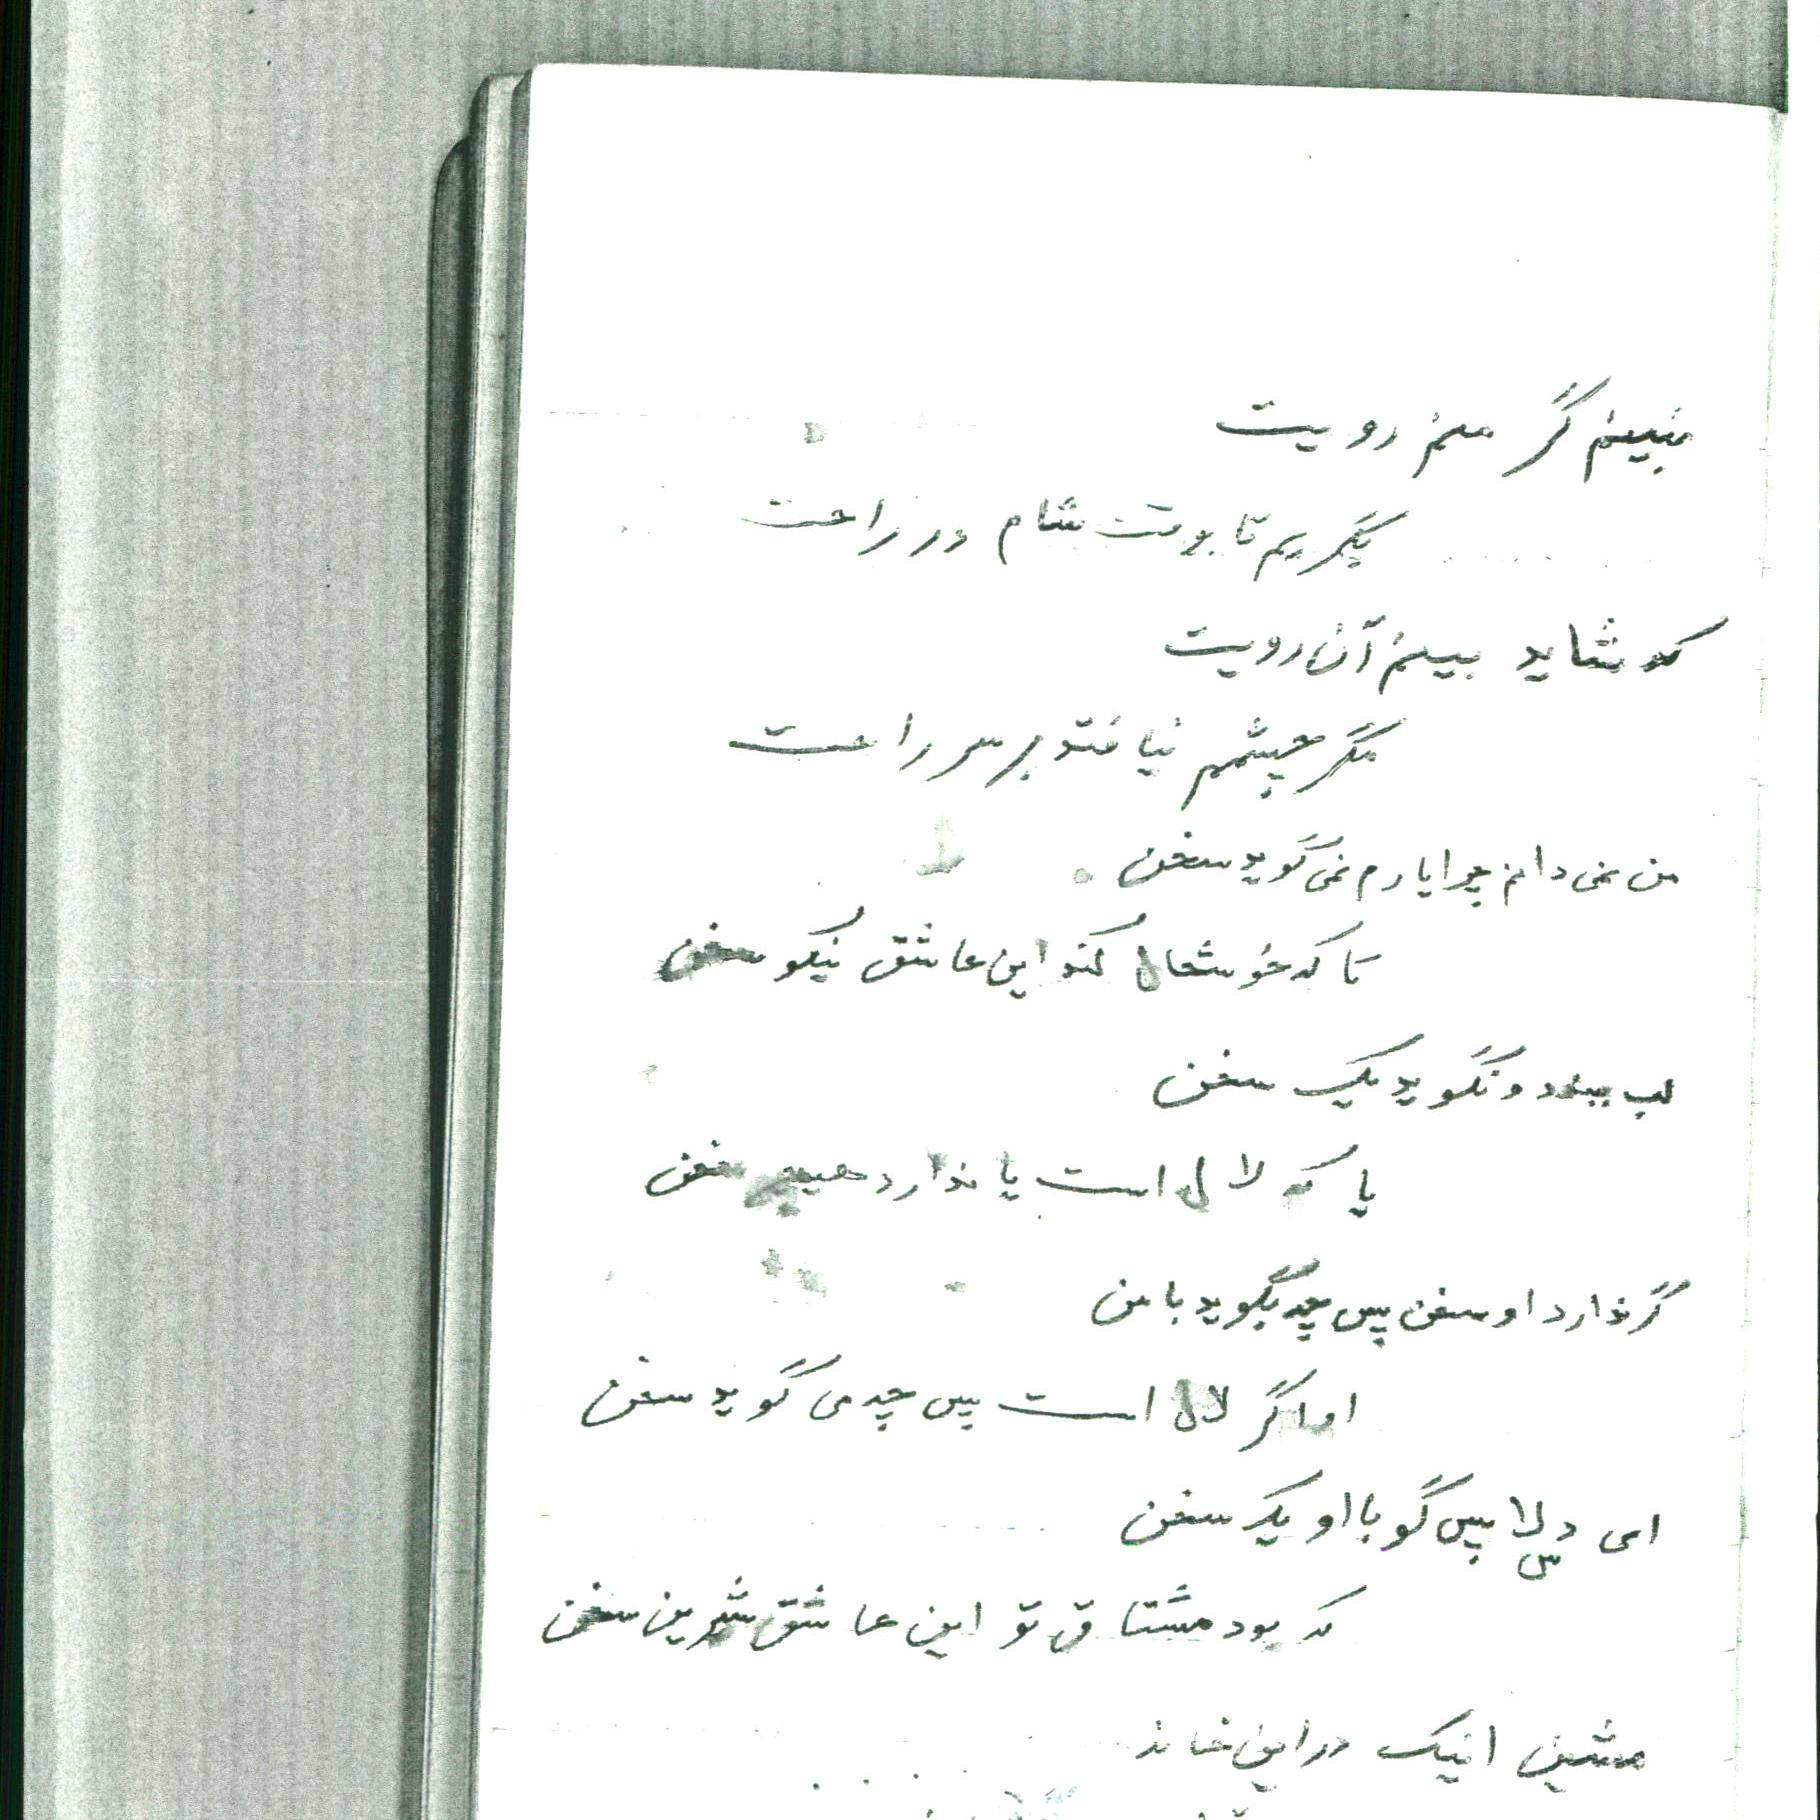 نبینم گر منم رویت
بگریم تا بوقت شام در راهت
که شاید بینم آن رویت
مگر چشمم نیافتد بر سر راهت
من نمی دانم چرا یارم نمی گوید سخن
تا که خوشحال کند این عاشق نیکو سخن
لب ببندد و نگوید یک سخن
یا که لال است یا ندارد هیچ سخن
گر ندارد او سخن پس چه بگوید با من
اما گر لال است پس چه می گوید سخن
ای دلا پس گو با او یک سخن
که بود مشتاق تو این عاشق شیرین سخن
منشین اینک در این خانه